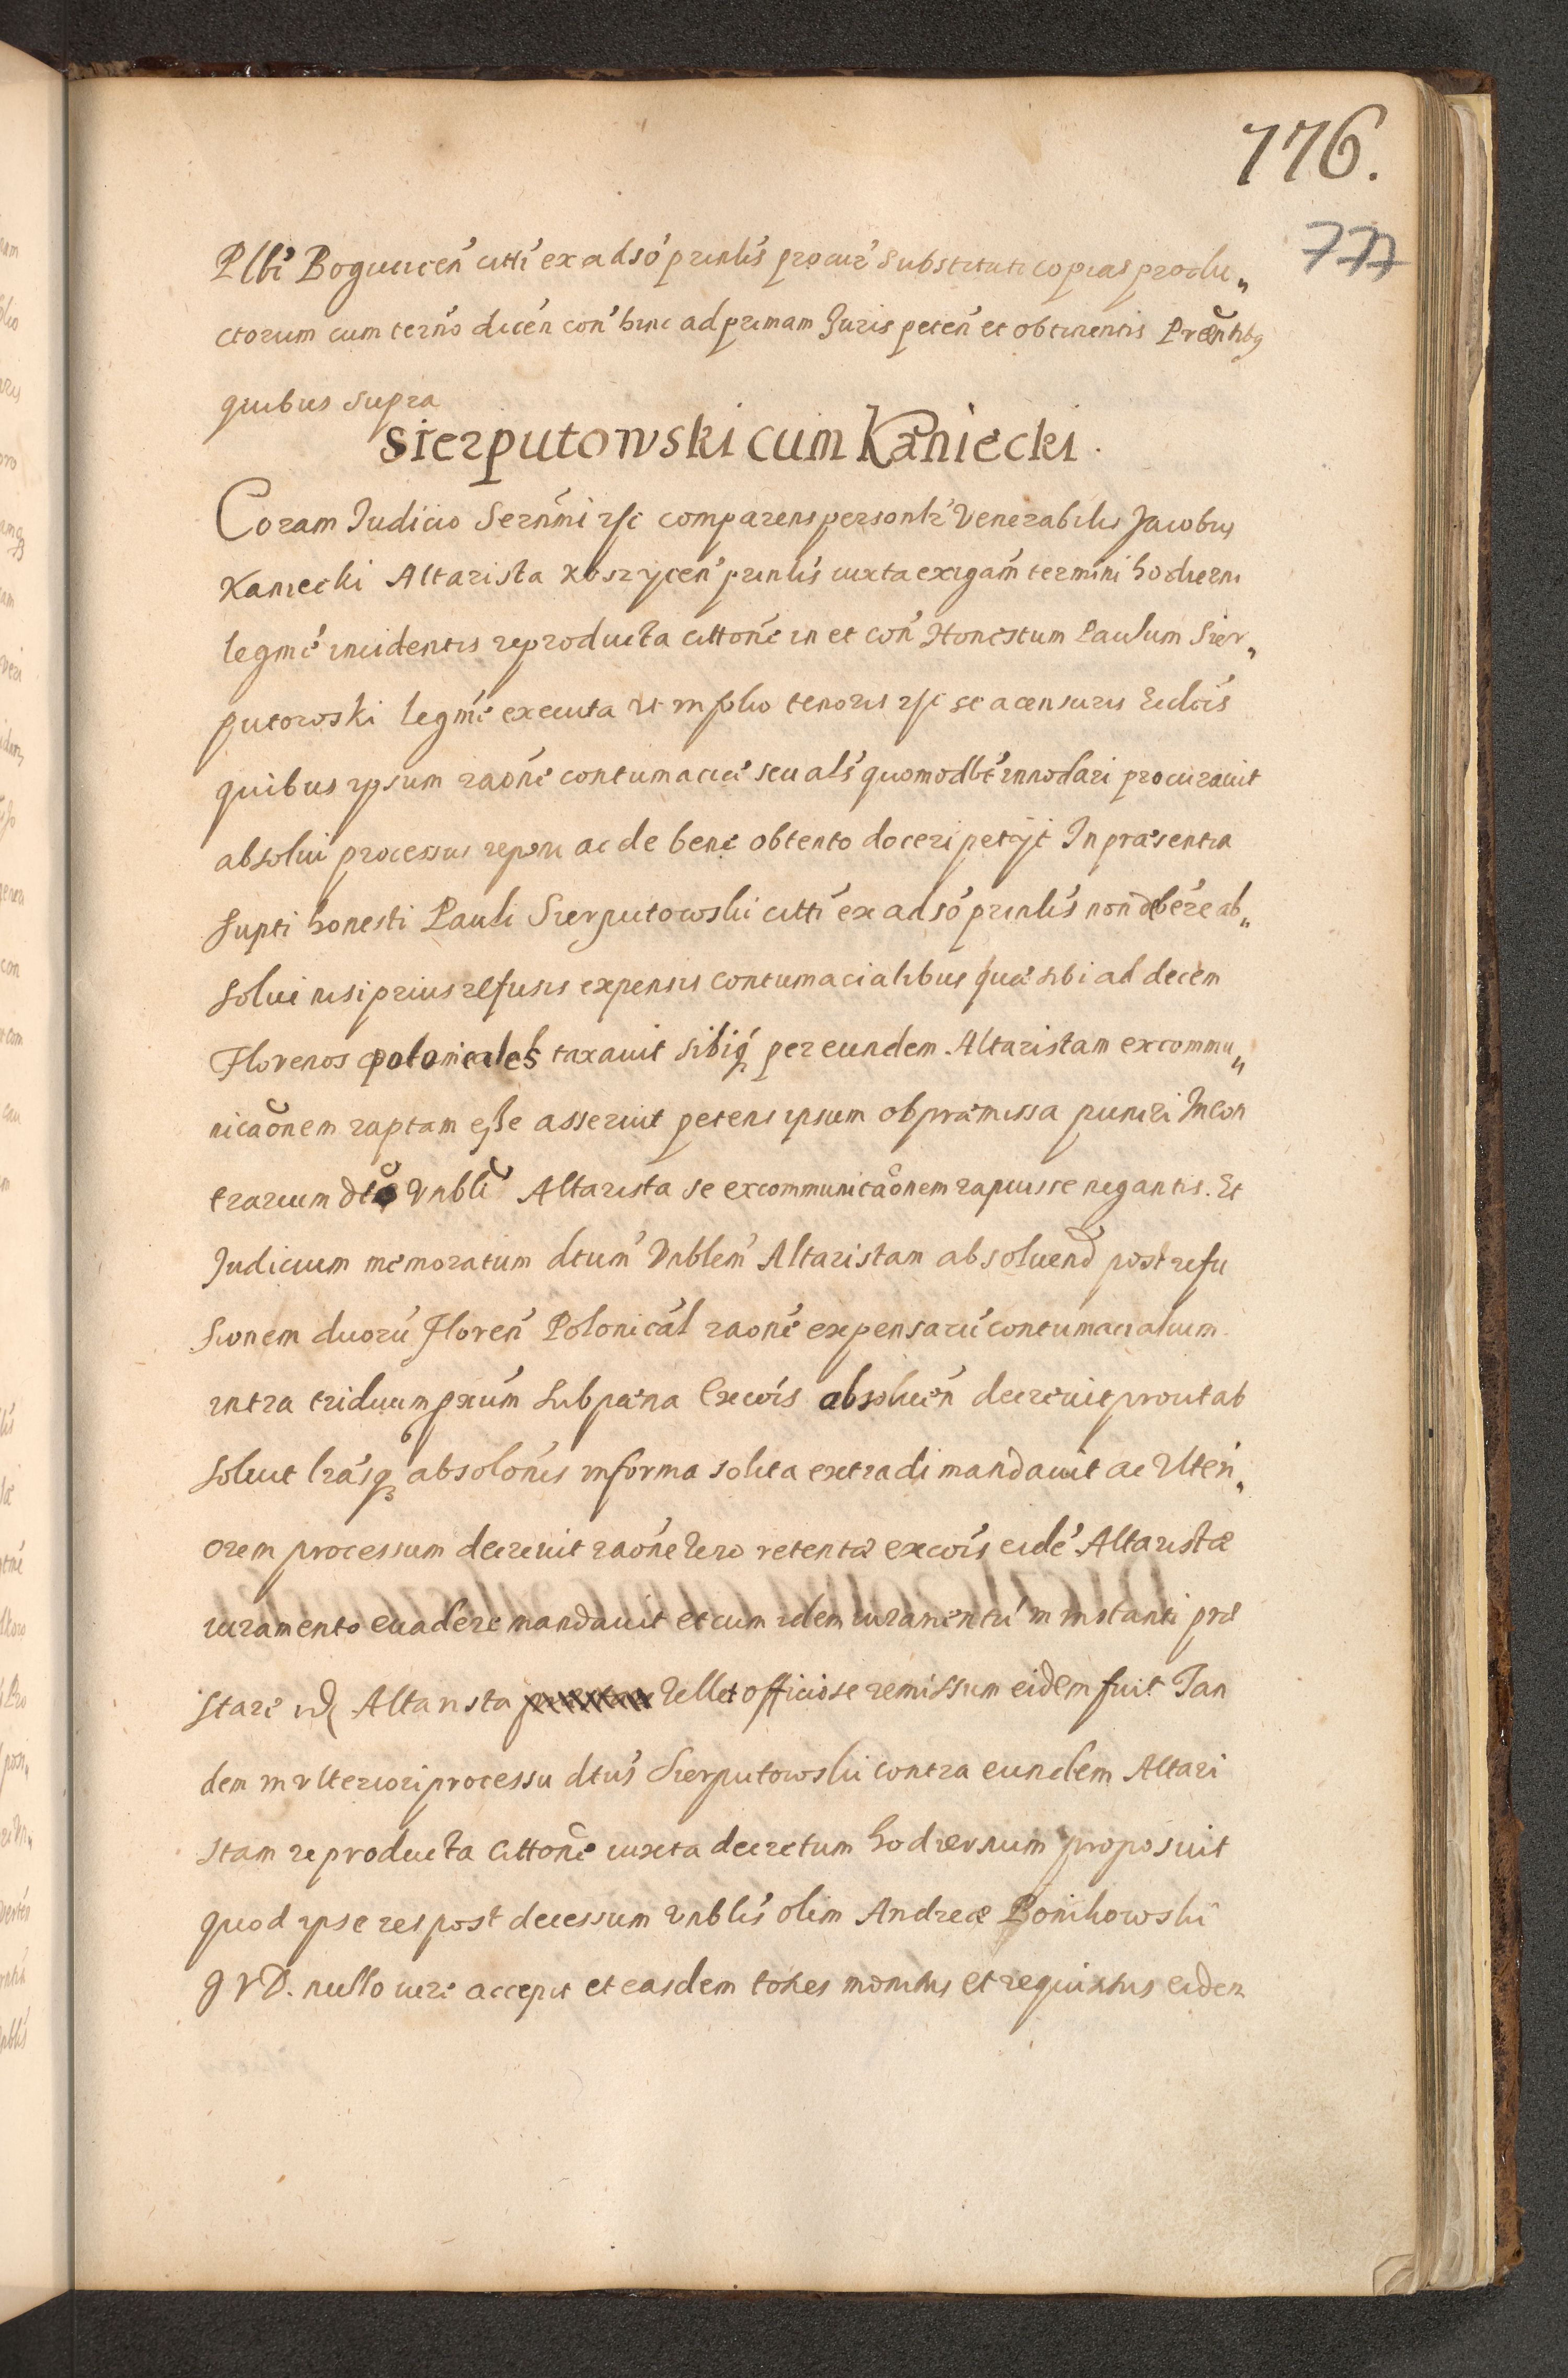 776.
777
Plbi Bogucicen̄ citti ex adso prinlis procur̄ Substituti copias produ„
ctorum cum termo dicen̄ con̄ hinc ad primam Juris peten̄ et obtinentis Præntibq
quibus supra
Sierputowski cum Kaniecki.
Coram Judicio Sermi rsc comparens personlr Venerabilis Jacobus
Kaniecki Altarista Koszycen̄ prinlis iuxta exigam termini hodierni
legme incidentis reproducta cittone in et con̄ Honestum Paulum Sier„
putowski legme executa ut in plio tenoris rsc se a censuris Ecclcis
quibus ipsum raone contumaciæ seu als quomodlt innodari procurauit
absolui processus reponi ac de bene obtento doceri petijt In præsentia
supti honesti Pauli Sierputowski citti ex adso prinlis non debere ab„
solui nisi prius refusis expensis contumacialibus quæ sibi ad decem
Florenos polonicales taxauit sibiq per eundem Altaristam excommu„
nicaonem raptam esse asseruit petens ipsum ob præmissa puniri In con
trarium dto Vnbli Altarista se excommunicaonem rapuisse negantis. Et
Judicium memoratum dtum Vnblem Altaristam absoluend post refu
sionem duorū Floren̄ Polonical raone expensarū contumacialium
intra triduum pxum sub pœna Excois absoluen̄ decreuit prout ab
soluit lrasq absolonis in forma solita extradi mandauit ac Ulteri„
orem processum decreuit raone vero retentæ excois eidē Altaristæ
iuramento euadere mandauit et cum idem iuramentū in instanti præ
stare id Altarista vellet officiose remissum eidem fuit Tan
dem in vlteriori processu dtus Sierputowski contra eundem Altari
stam reproducta cittone iuxta decretum hodiernum proposuit
quod ipse res post decessum Vnblis olim Andreæ Bonikowski
g V D. nullo iure accepit et easdem toties monitus et requisitus eidem